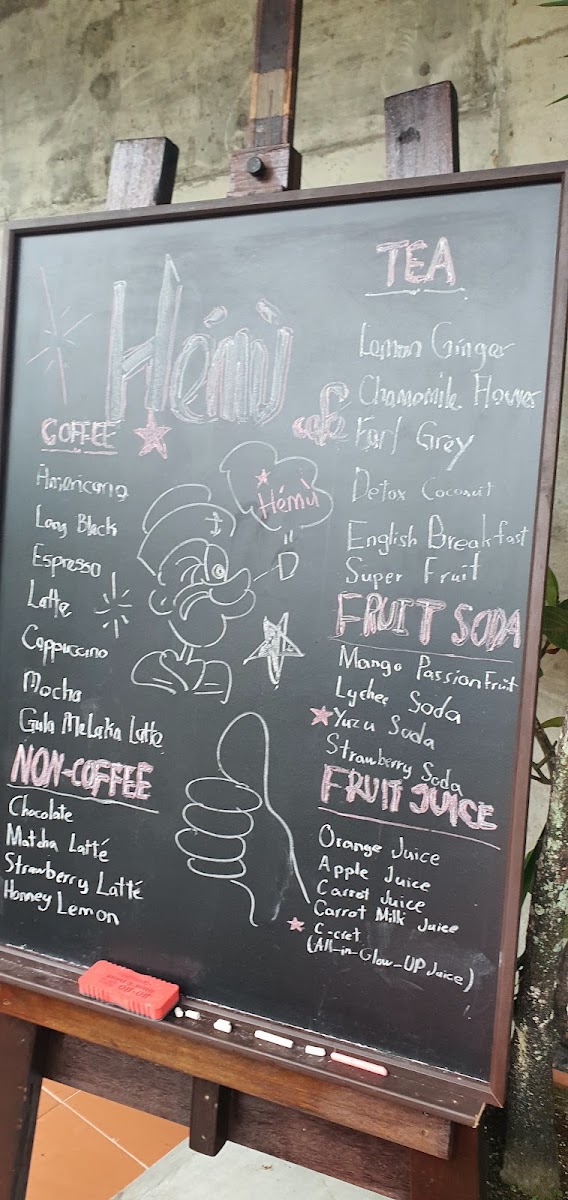 Hémù
café
COFFEE
Americano
Long Black
Espresso
Latte
Cappuccino
Mocha
Gula Melaka Latte
NON-COFFEE
Chocolate
Matcha Latté
Strawberry Latté
Honney Lemon
Hémù
TEA
Lemon Ginger
Chamomile Flower
Earl Grey
Detox Coconut
English Breakfast
Super Fruit
FRUIT SODA
Mango Passion Fruit
Lychee Soda
Yuzu Soda
Strawberry Soda
FRUIT JUICE
Orange Juice
Apple Juice
Carrot Juice
Carrot Milk Juice
C-cret
(All-in-Glow-UP Juice)